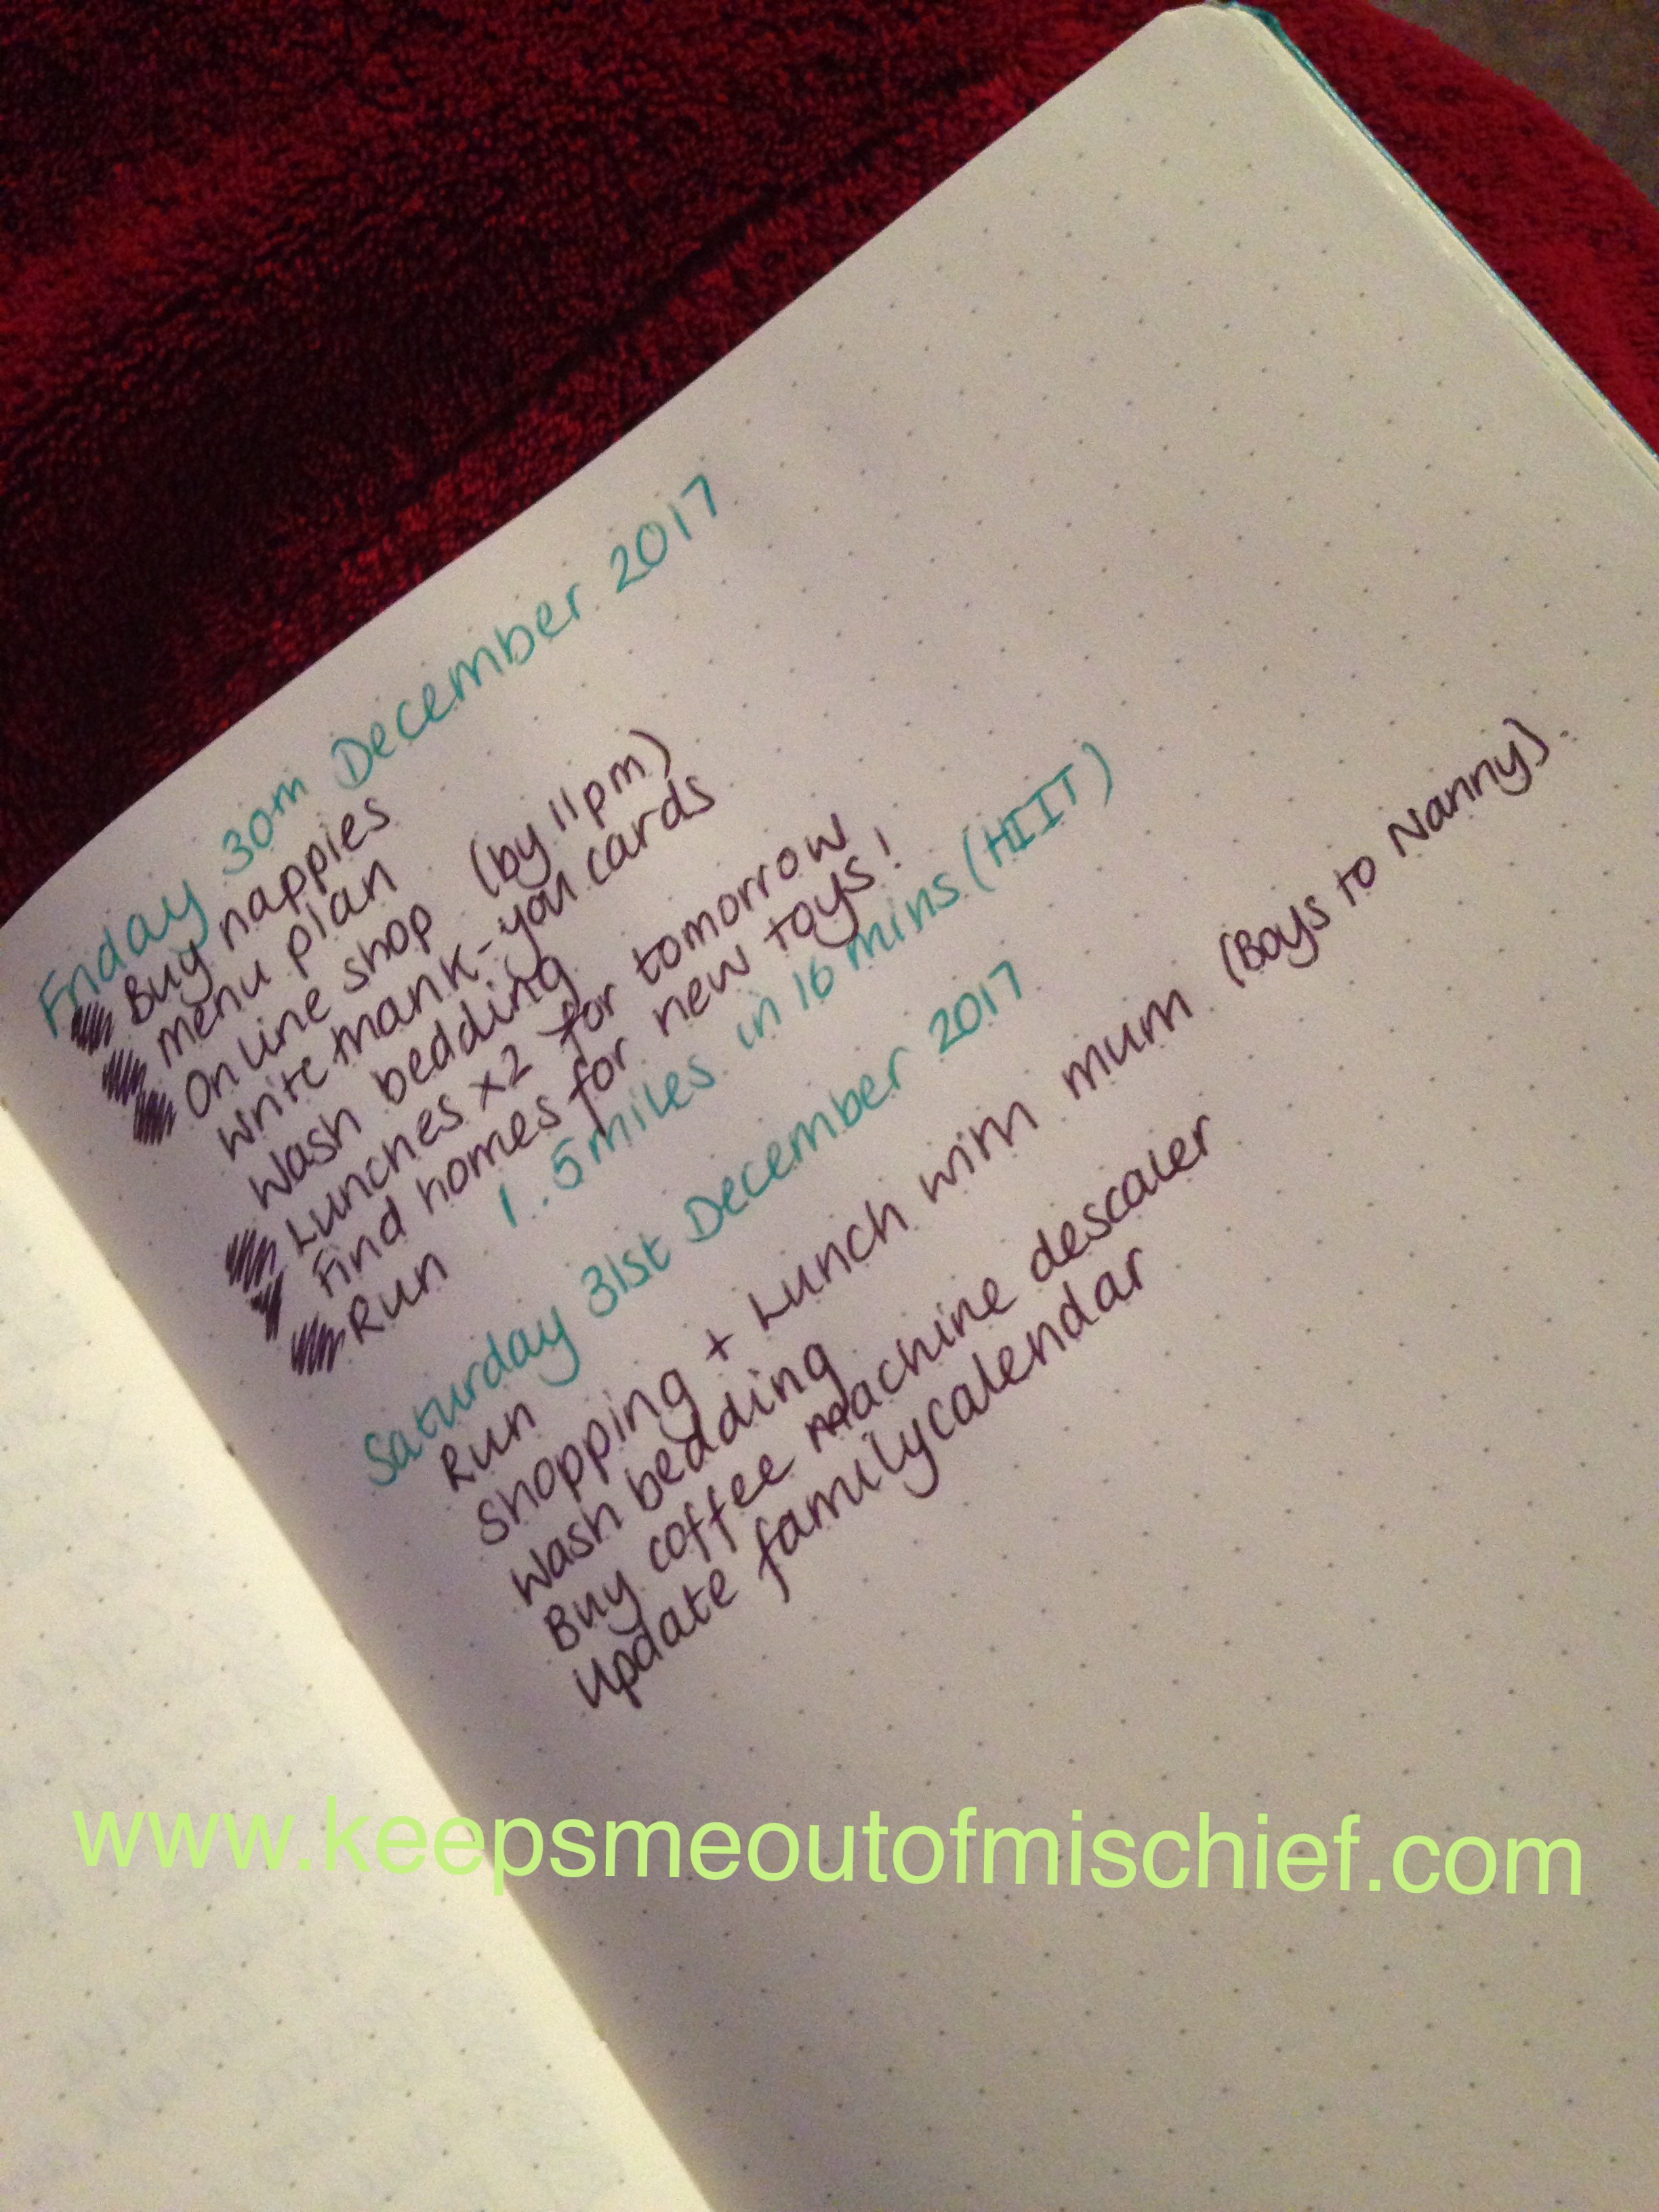 Friday 30th December 2017
Buy nappies
menu plan
Online shop (by 11pm)
Write thank-you cards
Wash bedding
Lunches x2 for tomorrow
Find homes for new toys!
Run 1.5miles in 16 mins (HIIT)
Saturday 31st December 2017
Run
Shopping + Lunch with mum (Boys to Nanny).
Wash bedding
Buy coffee machine descaler
Update family calendar
www.keepsmeoutofmischief.com